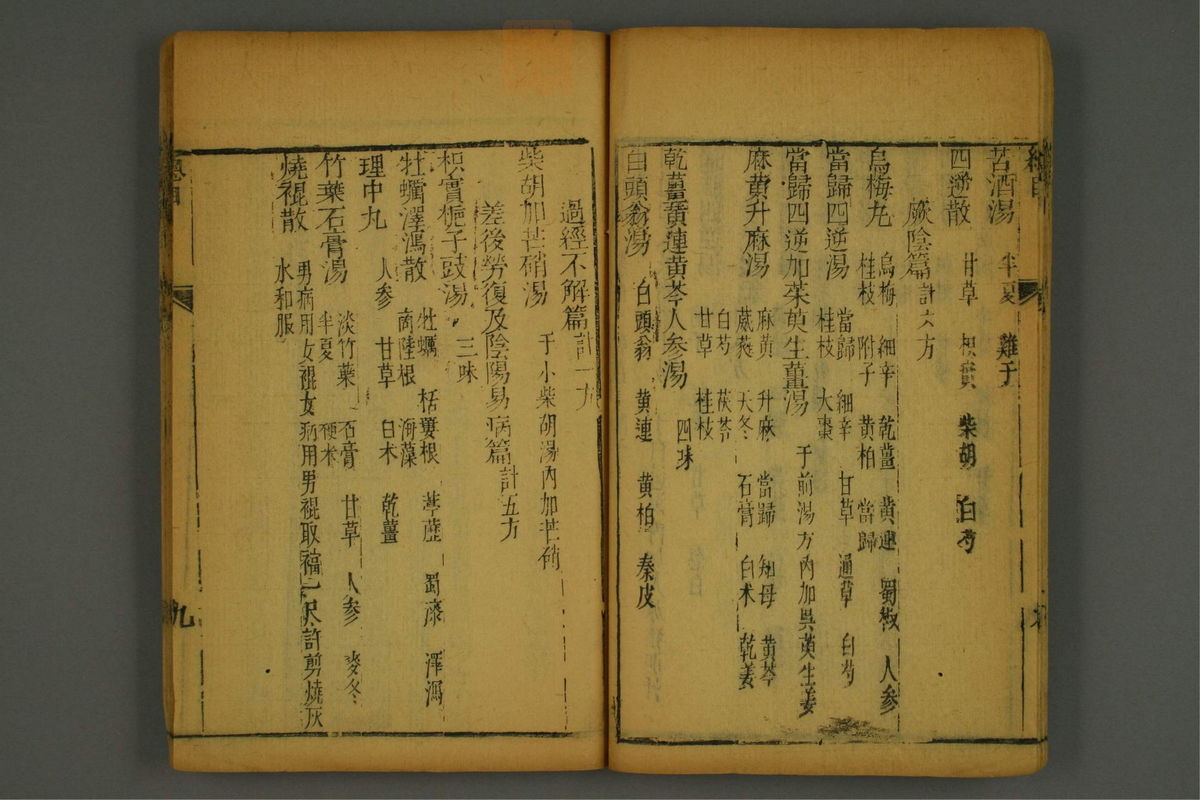 苦酒湯 半夏 雞子
四逆散 甘草 枳實 柴胡 白芍
厥陰篇計六方
烏梅丸 烏梅 細辛 乾薑 黃連 蜀椒 人參
桂枝 附子 黃柏 當歸
當歸四逆湯 當歸 細辛 甘草 通草 白芍
桂枝 大棗
當歸四逆加茱萸生薑湯 于前湯方內加吳萸生姜
麻黃升麻湯 麻黃 升麻 當歸 知母 黃芩
葳蕤 天冬 石膏 白朮 乾姜
白芍 茯苓
甘草 桂枝
乾薑黃連黃芩人參湯 四味
白頭翁湯 白頭翁 黃連 黃柏 秦皮
過經不解篇計一方
柴胡加芒硝湯 于小柴胡湯內加芒硝
差後勞復及陰陽易病篇計五方
枳實梔子豉湯 三味
牡蠣澤瀉散 牡蠣 栝蔞根 葶藶 蜀漆 澤瀉
商陸根 海藻
理中丸 人參 甘草 白朮 乾薑
竹葉石膏湯 淡竹葉 石膏 甘草 人參 麥冬
半夏 粳米
燒裩散 男病用女裩女病用男裩取襠一尺許剪燒灰
水和服
九